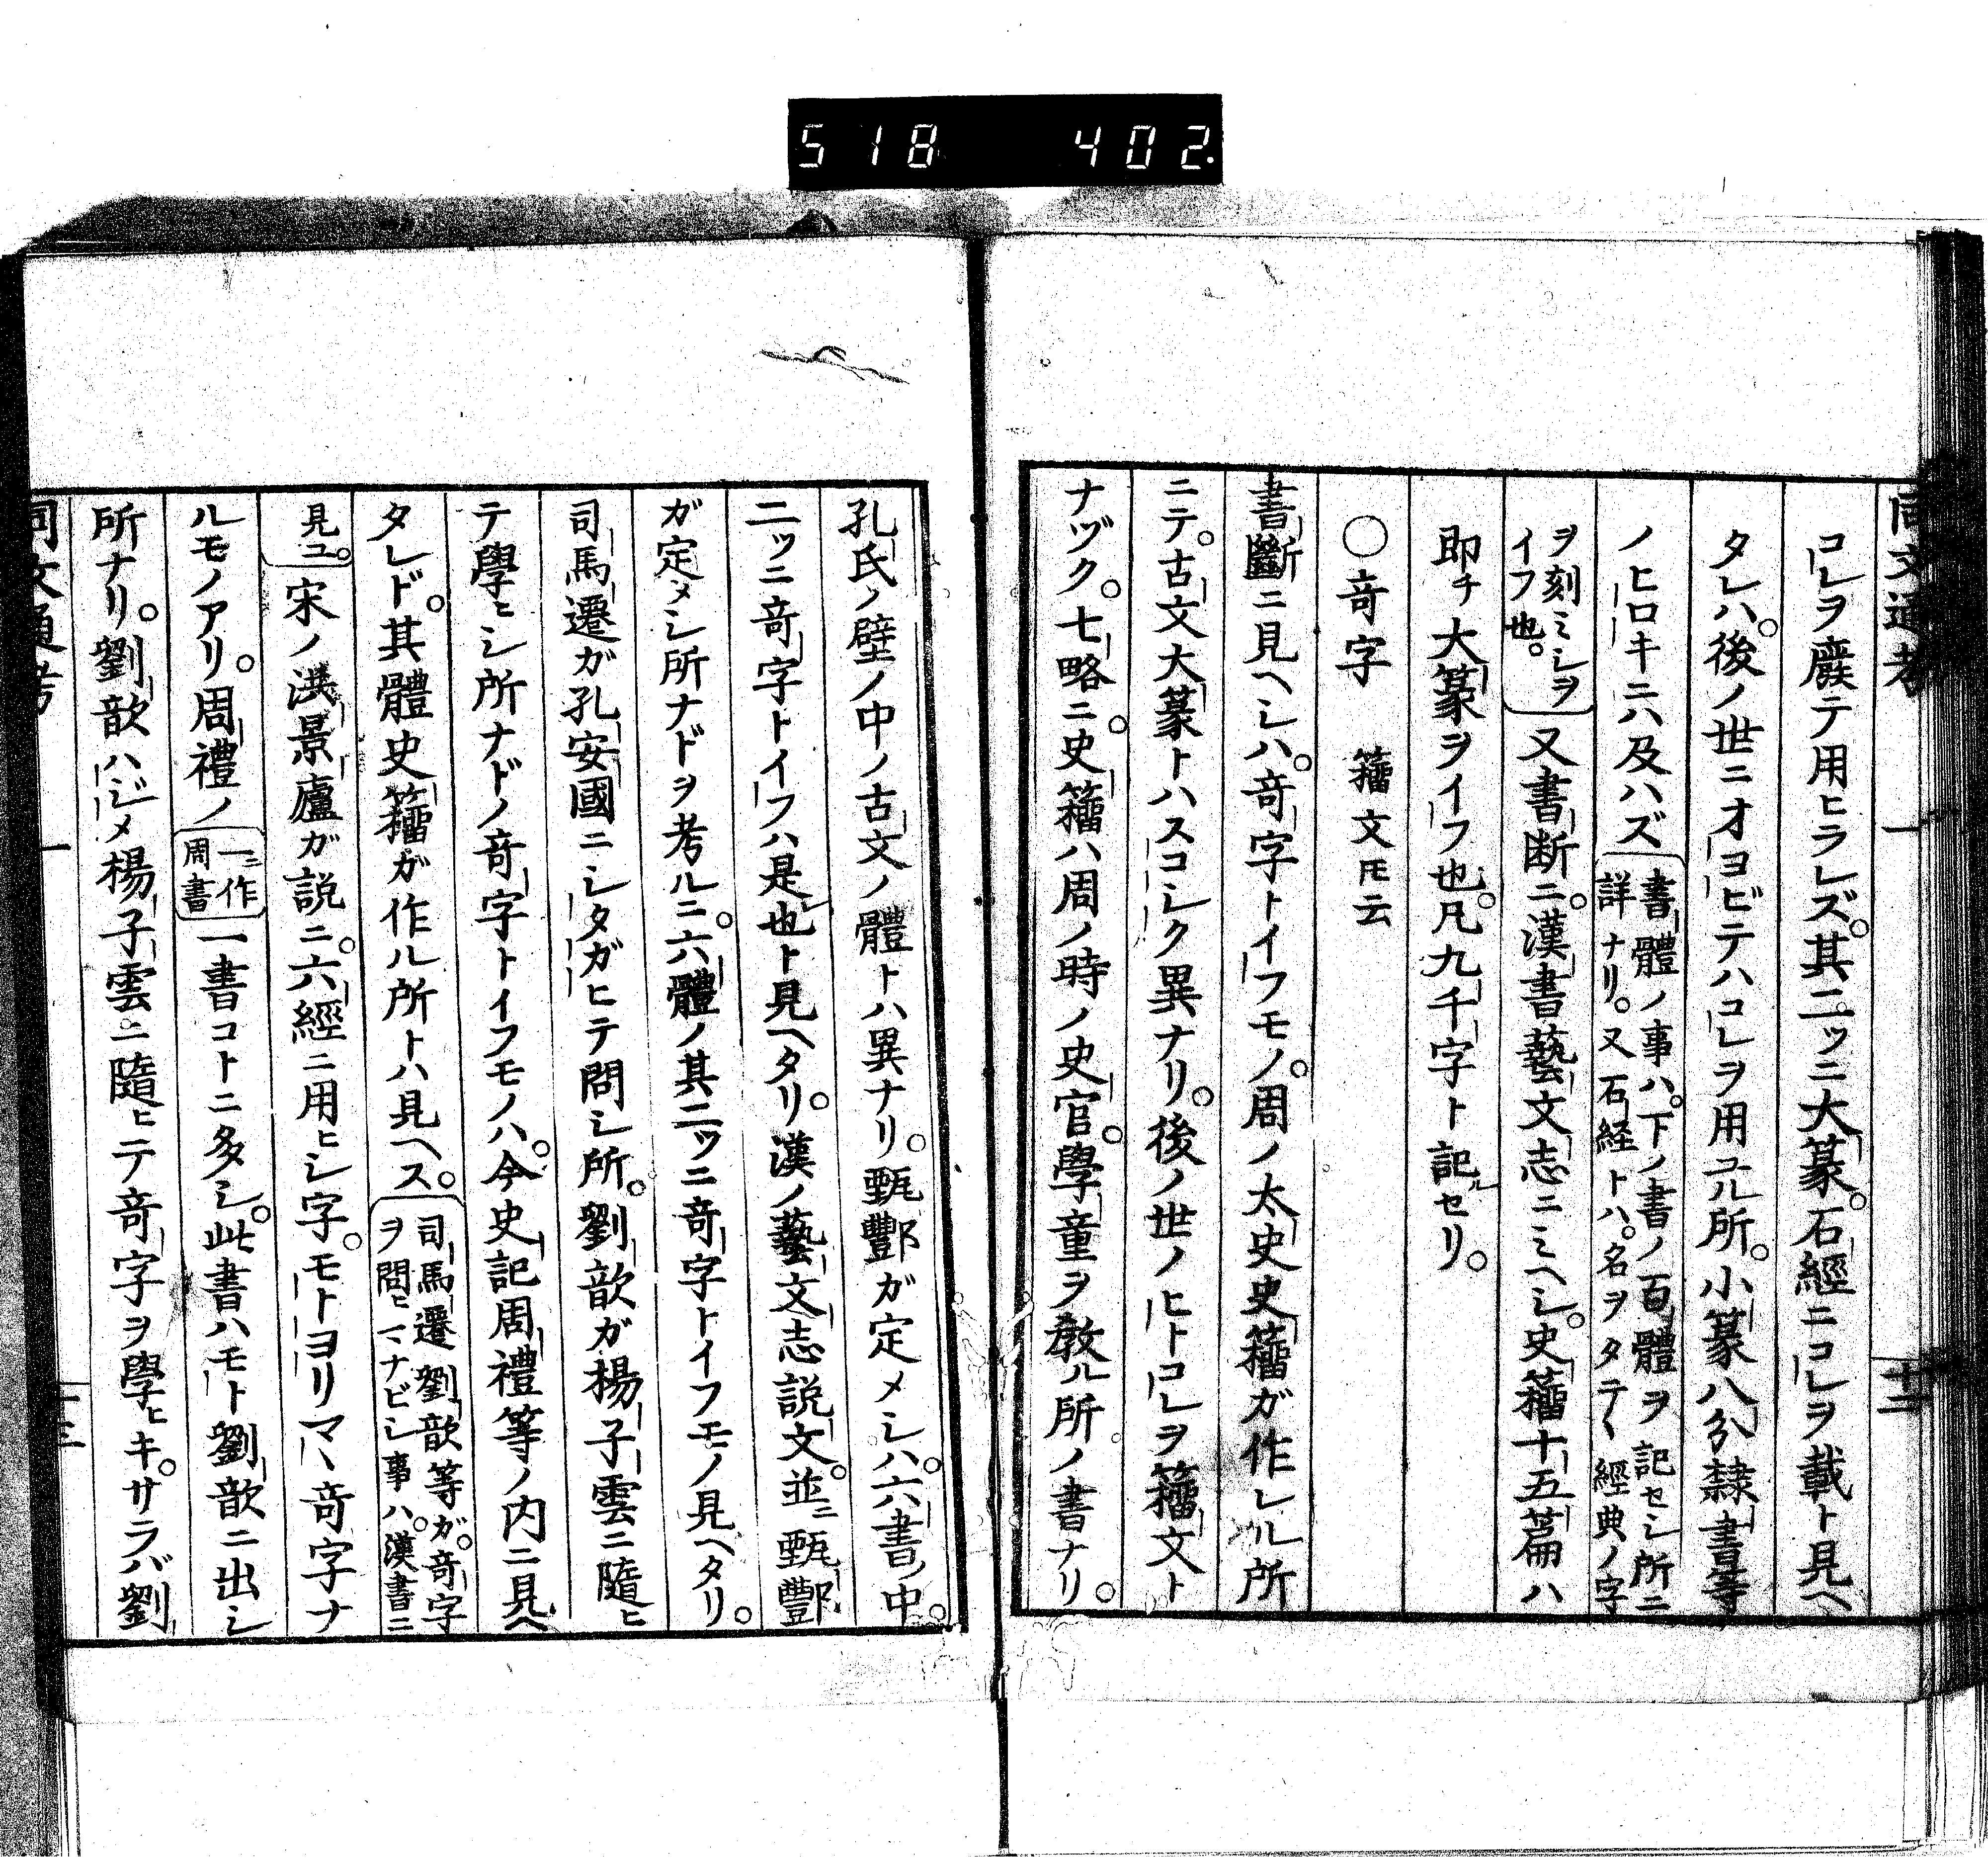 518 402.
同文通考 一 十二
コレヲ廢テ用ヒラレズ。其二ツニ大篆。石經ニコレヲ載ト見ヘ
タレハ。後ノ世ニオヨビテハコレヲ用ユル所。小篆八分隷書等
ノヒロキニハ及ハズ
書體ノ事ハ。下ノ書ノ百體ヲ記セシ所ニ
詳ナリ。又石経トハ。名ヲタテヽ經典ノ字
ヲ刻ミシヲ
イフ也。
又書断ニ。漢書藝文志ニミヘシ。史籒十五篇ハ
即チ大篆ヲイフ也。凡九千字ト記セリ。
○竒字 籒文𪜈云
書斷ニ見ヘシハ。竒字トイフモノ。周ノ太史史籒ガ作レル所
ニテ。古文大篆トハスコシク異ナリ。後ノ世ノヒトコレヲ籒文ト
ナヅク。七略ニ。史籒ハ周ノ時ノ史官。學童ヲ教ル所ノ書ナリ。
孔氏ノ壁ノ中ノ古文ノ體トハ異ナリ。甄豐ガ定メシハ。六書ノ中。
二ツニ竒字トイフハ是也ト見ヘタリ。漢ノ藝文志説文。並ニ甄酆
ガ定メシ所ナドヲ考ルニ。六體ノ其二ツニ竒字トイフモノ見ヘタリ。
司馬遷ガ孔安國ニシタガヒテ問シ所。劉歆ガ楊子雲ニ隨ヒ
テ學ヒシ所ナドノ竒字トイフモノハ。今史記周禮等ノ内ニ見ヘ
タレド。其體史籒ガ作ル所トハ見ヘス。
司馬遷劉歆等ガ。竒字
ヲ問ヒマナビシ事ハ。漢書ニ
見ユ。
宋ノ洪景盧ガ説ニ。六經ニ用ヒシ字。モトヨリマヽ竒字ナ
ルモノアリ。周禮ノ
一ニ作
周書
一書コトニ多シ。此書ハモト劉歆ニ出シ
所ナリ。劉歆ハジメ楊子雲ニ隨ヒテ竒字ヲ學ヒキ。サラバ劉
同文通考 一 十三